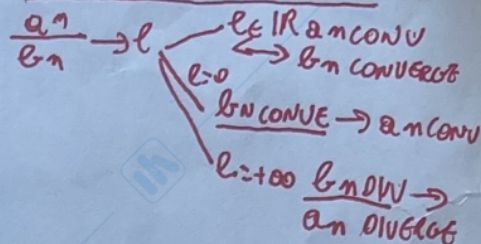 an/bn → l
l ∈ IR an CONV
↔ bn CONVERGE
l=0
bn CONVE → an CONV
l=+∞ bn DIV →
an DIVERGE